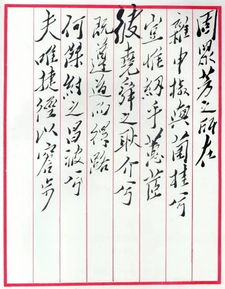 固眾芳之所在
雜申椒與菌桂兮
豈惟紉乎蕙茝
彼堯舜之耿介兮
既遵道而得路
何桀紂之昌被兮
夫唯捷徑以窘步